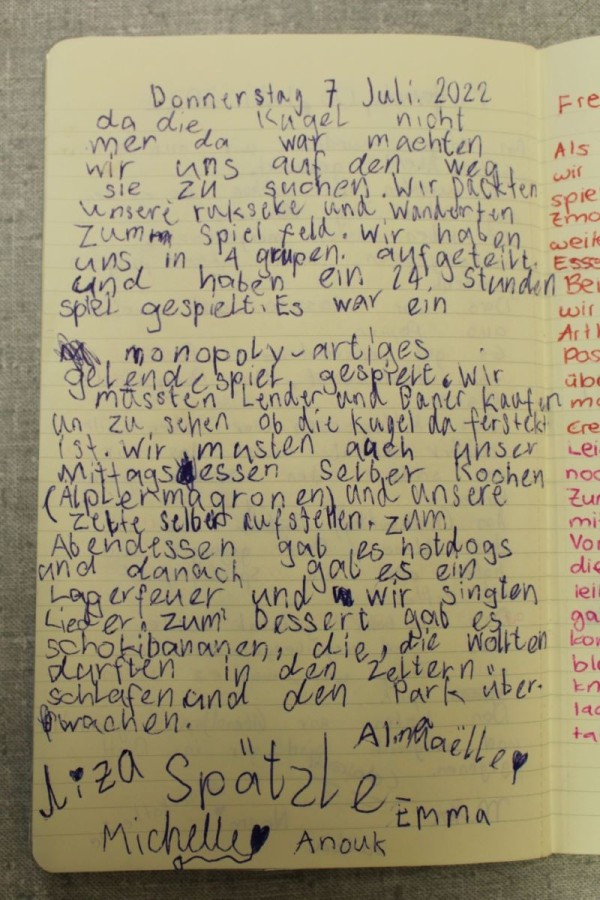 Donnerstag 7 Juli. 2022
da die Kugel nicht
mer da war machten
wir uns auf den weg
sie zu suchen. Wir packten
unsere rukseke und wanderten
zumm Spiel feld. Wir haben
uns in 4 grupen. aufgeteilt.
und haben ein 24. Stunden
spiel gespielt. Es war ein
monopoly-artiges
gelendespiel gespielt. Wir
mussten Lender und Baner kaufen
un zu sehen ob die kugel da ferstekt
ist. Wir musten auch unser
Mittagsessen selber kochen
(Alplermagronen) und unsere
zelte selber aufstellen. zum
Abendessen gab es hotdogs
und danach gab es ein
Lagerfeuer und wir singten
Lieder. zum Dessert gab es
schokibananen, die, die wollten
durften in den zeltern
schlafen und den Park über.
wachen.
Liza Spätzle Alina Gaëlle
Emma
Michelle Anouk
Fre
Als
wir
spie
zmo
weite
Esse
Bei
wir
Arth
Pos
übe
mo
cre
Lei
noc
zur
mit
Vor
die
leit
ga
kor
blo
kn
lac
ta